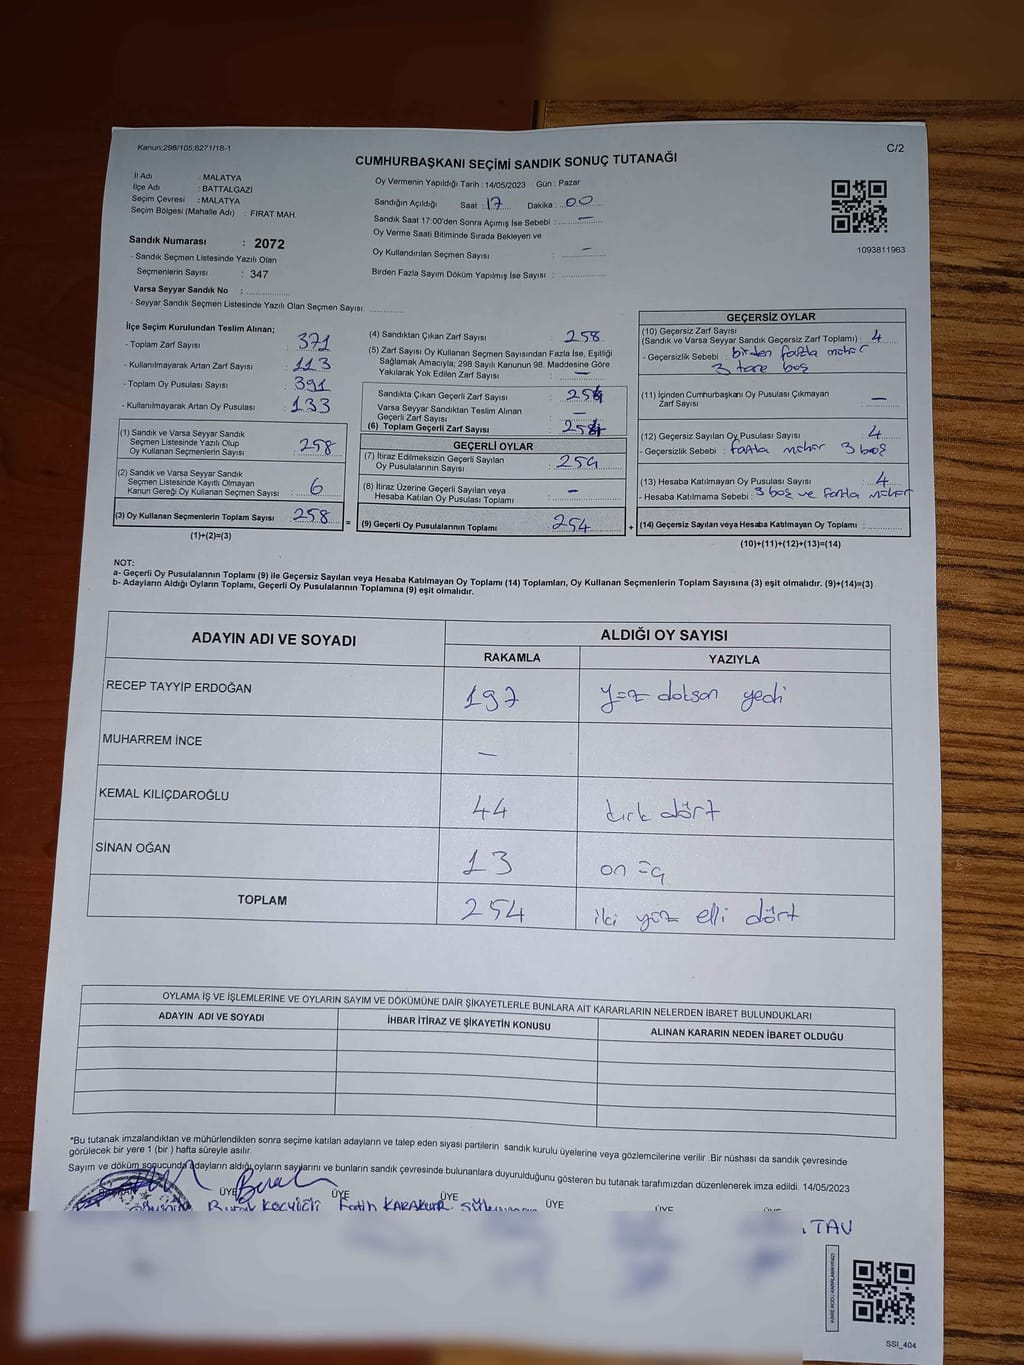 Kanun;298/105;6271/18-1
C/2
CUMHURBAŞKANI SEÇİMİ SANDIK SONUÇ TUTANAĞI
İl Adı : MALATYA
İlçe Adı : BATTALGAZİ
Seçim Çevresi : MALATYA
Seçim Bölgesi (Mahalle Adı) : FIRAT MAH.
Sandık Numarası : 2072
- Sandık Seçmen Listesinde Yazılı Olan
Seçmenlerin Sayısı : 347
Varsa Seyyar Sandık No : ..............
- Seyyar Sandık Seçmen Listesinde Yazılı Olan Seçmen Sayısı: ............
Oy Vermenin Yapıldığı Tarih : 14/05/2023 Gün : Pazar
Sandığın Açıldığı Saat : 17 Dakika : 00
Sandık Saat 17:00'den Sonra Açımış İse Sebebi : —
Oy Verme Saati Bitiminde Sırada Bekleyen ve
Oy Kullandırılan Seçmen Sayısı : —
Birden Fazla Sayım Döküm Yapılmış İse Sayısı : ..............
1093811963
İlçe Seçim Kurulundan Teslim Alınan;
- Toplam Zarf Sayısı : 371
- Kullanılmayarak Artan Zarf Sayısı : 113
- Toplam Oy Pusulası Sayısı : 391
- Kullanılmayarak Artan Oy Pusulası : 133
(1) Sandık ve Varsa Seyyar Sandık
Seçmen Listesinde Yazılı Olup
Oy Kullanan Seçmenlerin Sayısı : 258
(2) Sandık ve Varsa Seyyar Sandık
Seçmen Listesinde Kayıtlı Olmayan
Kanun Gereği Oy Kullanan Seçmen Sayısı : 6
(3) Oy Kullanan Seçmenlerin Toplam Sayısı : 258 =
(1)+(2)=(3)
(4) Sandıktan Çıkan Zarf Sayısı : 258
(5) Zarf Sayısı Oy Kullanan Seçmen Sayısından Fazla İse, Eşitliği
Sağlamak Amacıyla; 298 Sayılı Kanunun 98. Maddesine Göre
Yakılarak Yok Edilen Zarf Sayısı : —
Sandıkta Çıkan Geçerli Zarf Sayısı : 254
Varsa Seyyar Sandıktan Teslim Alınan
Geçerli Zarf Sayısı : —
(6) Toplam Geçerli Zarf Sayısı : 254
GEÇERLİ OYLAR
(7) İtiraz Edilmeksizin Geçerli Sayılan
Oy Pusulalarının Sayısı : 254
(8) İtiraz Üzerine Geçerli Sayılan veya
Hesaba Katılan Oy Pusulası Toplamı : —
(9) Geçerli Oy Pusulalarının Toplamı : 254 +
GEÇERSİZ OYLAR
(10) Geçersiz Zarf Sayısı
(Sandık ve Varsa Seyyar Sandık Geçersiz Zarf Toplamı) : 4
- Geçersizlik Sebebi : birden fazla mühür
3 tane boş
(11) İçinden Cumhurbaşkanı Oy Pusulası Çıkmayan
Zarf Sayısı : —
(12) Geçersiz Sayılan Oy Pusulası Sayısı : 4
- Geçersizlik Sebebi : fazla mühür 3 boş
(13) Hesaba Katılmayan Oy Pusulası Sayısı : 4
- Hesaba Katılmama Sebebi : 3 boş ve fazla mühür
(14) Geçersiz Sayılan veya Hesaba Katılmayan Oy Toplamı : ............
(10)+(11)+(12)+(13)=(14)
NOT:
a- Geçerli Oy Pusulalarının Toplamı (9) ile Geçersiz Sayılan veya Hesaba Katılmayan Oy Toplamı (14) Toplamları, Oy Kullanan Seçmenlerin Toplam Sayısına (3) eşit olmalıdır. (9)+(14)=(3)
b- Adayların Aldığı Oyların Toplamı, Geçerli Oy Pusulalarının Toplamına (9) eşit olmalıdır.
ADAYIN ADI VE SOYADI
ALDIĞI OY SAYISI
RAKAMLA YAZIYLA
RECEP TAYYİP ERDOĞAN 197 yüz doksan yedi
MUHARREM İNCE —
KEMAL KILIÇDAROĞLU 44 kırk dört
SİNAN OĞAN 13 on üç
TOPLAM 254 iki yüz elli dört
OYLAMA İŞ VE İŞLEMLERİNE VE OYLARIN SAYIM VE DÖKÜMÜNE DAİR ŞİKAYETLERLE BUNLARA AİT KARARLARIN NELERDEN İBARET BULUNDUKLARI
ADAYIN ADI VE SOYADI İHBAR İTİRAZ VE ŞİKAYETİN KONUSU ALINAN KARARIN NEDEN İBARET OLDUĞU
*Bu tutanak imzalandıktan ve mühürlendikten sonra seçime katılan adayların ve talep eden siyasi partilerin sandık kurulu üyelerine veya gözlemcilerine verilir .Bir nüshası da sandık çevresinde
görülecek bir yere 1 (bir ) hafta süreyle asılır.
Sayım ve döküm sonucunda adayların aldığı oyların sayılarını ve bunların sandık çevresinde bulunanlara duyurulduğunu gösteren bu tutanak tarafımızdan düzenlenerek imza edildi. 14/05/2023
BAŞKAN ÜYE ÜYE ÜYE ÜYE ÜYE ÜYE
Fatih KARAKURT
TAV
SSİ_404